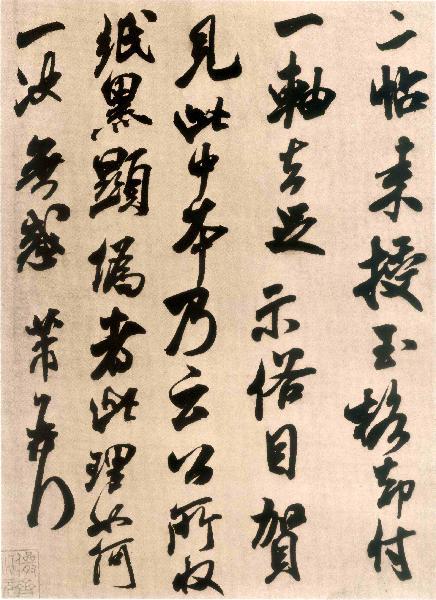 二帖未授玉却付
一軸去足示俗目賀
見此中本乃云公所收
紙黑顯偽者此理如何
一決無惑 芾頓首